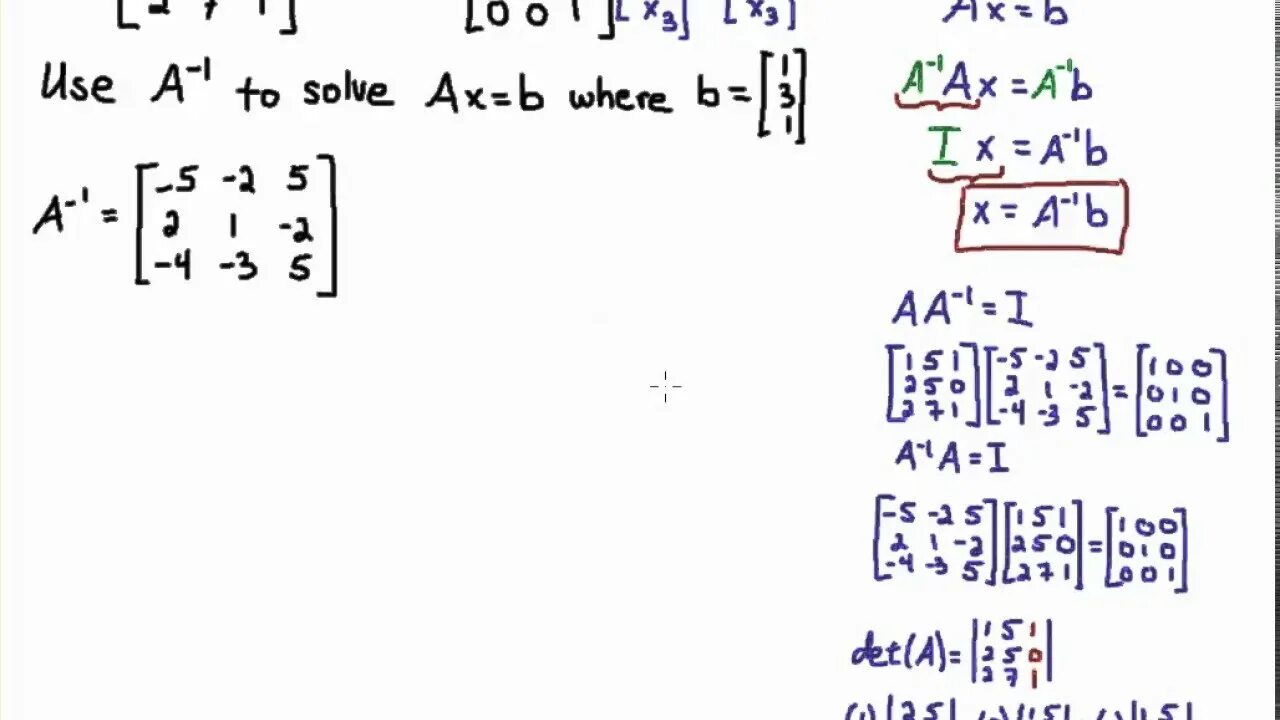 [2 7 1] [0 0 1] [x₃] [x₃]
Use A⁻¹ to solve Ax = b where b = [1; 3; 1]
A⁻¹ = [-5 -2 5; 2 1 -2; -4 -3 5]
Ax = b
A⁻¹Ax = A⁻¹b
I x = A⁻¹b
x = A⁻¹b
AA⁻¹ = I
[1 5 1; 2 5 0; 2 7 1] [-5 -2 5; 2 1 -2; -4 -3 5] = [1 0 0; 0 1 0; 0 0 1]
A⁻¹A = I
[-5 -2 5; 2 1 -2; -4 -3 5] [1 5 1; 2 5 0; 2 7 1] = [1 0 0; 0 1 0; 0 0 1]
det(A) = |1 5 1; 2 5 0; 2 7 1|